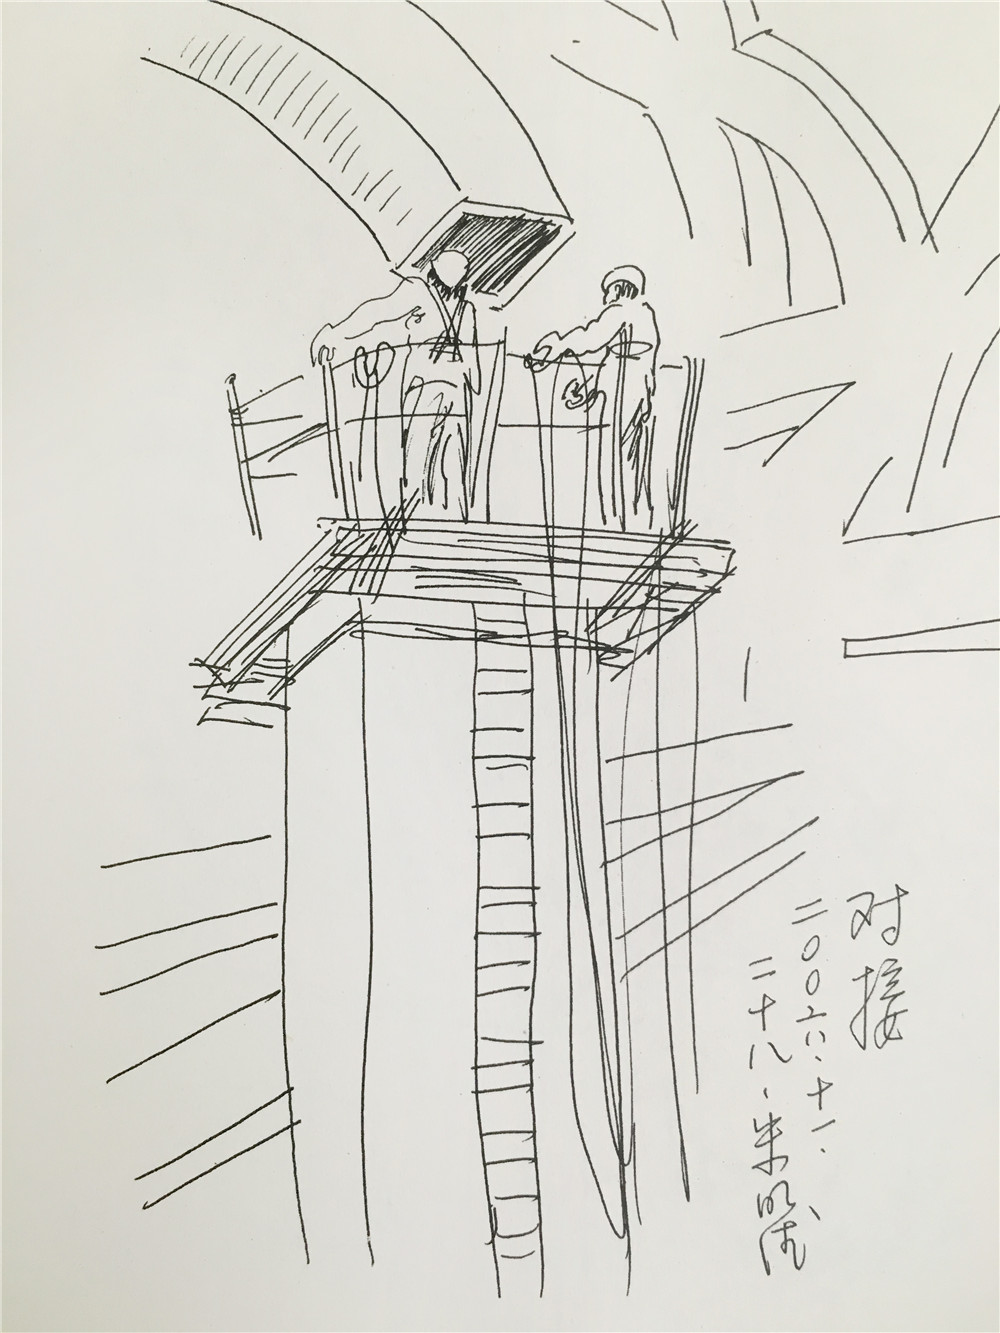 对接
二〇〇六.十一.
二十八.朱明德